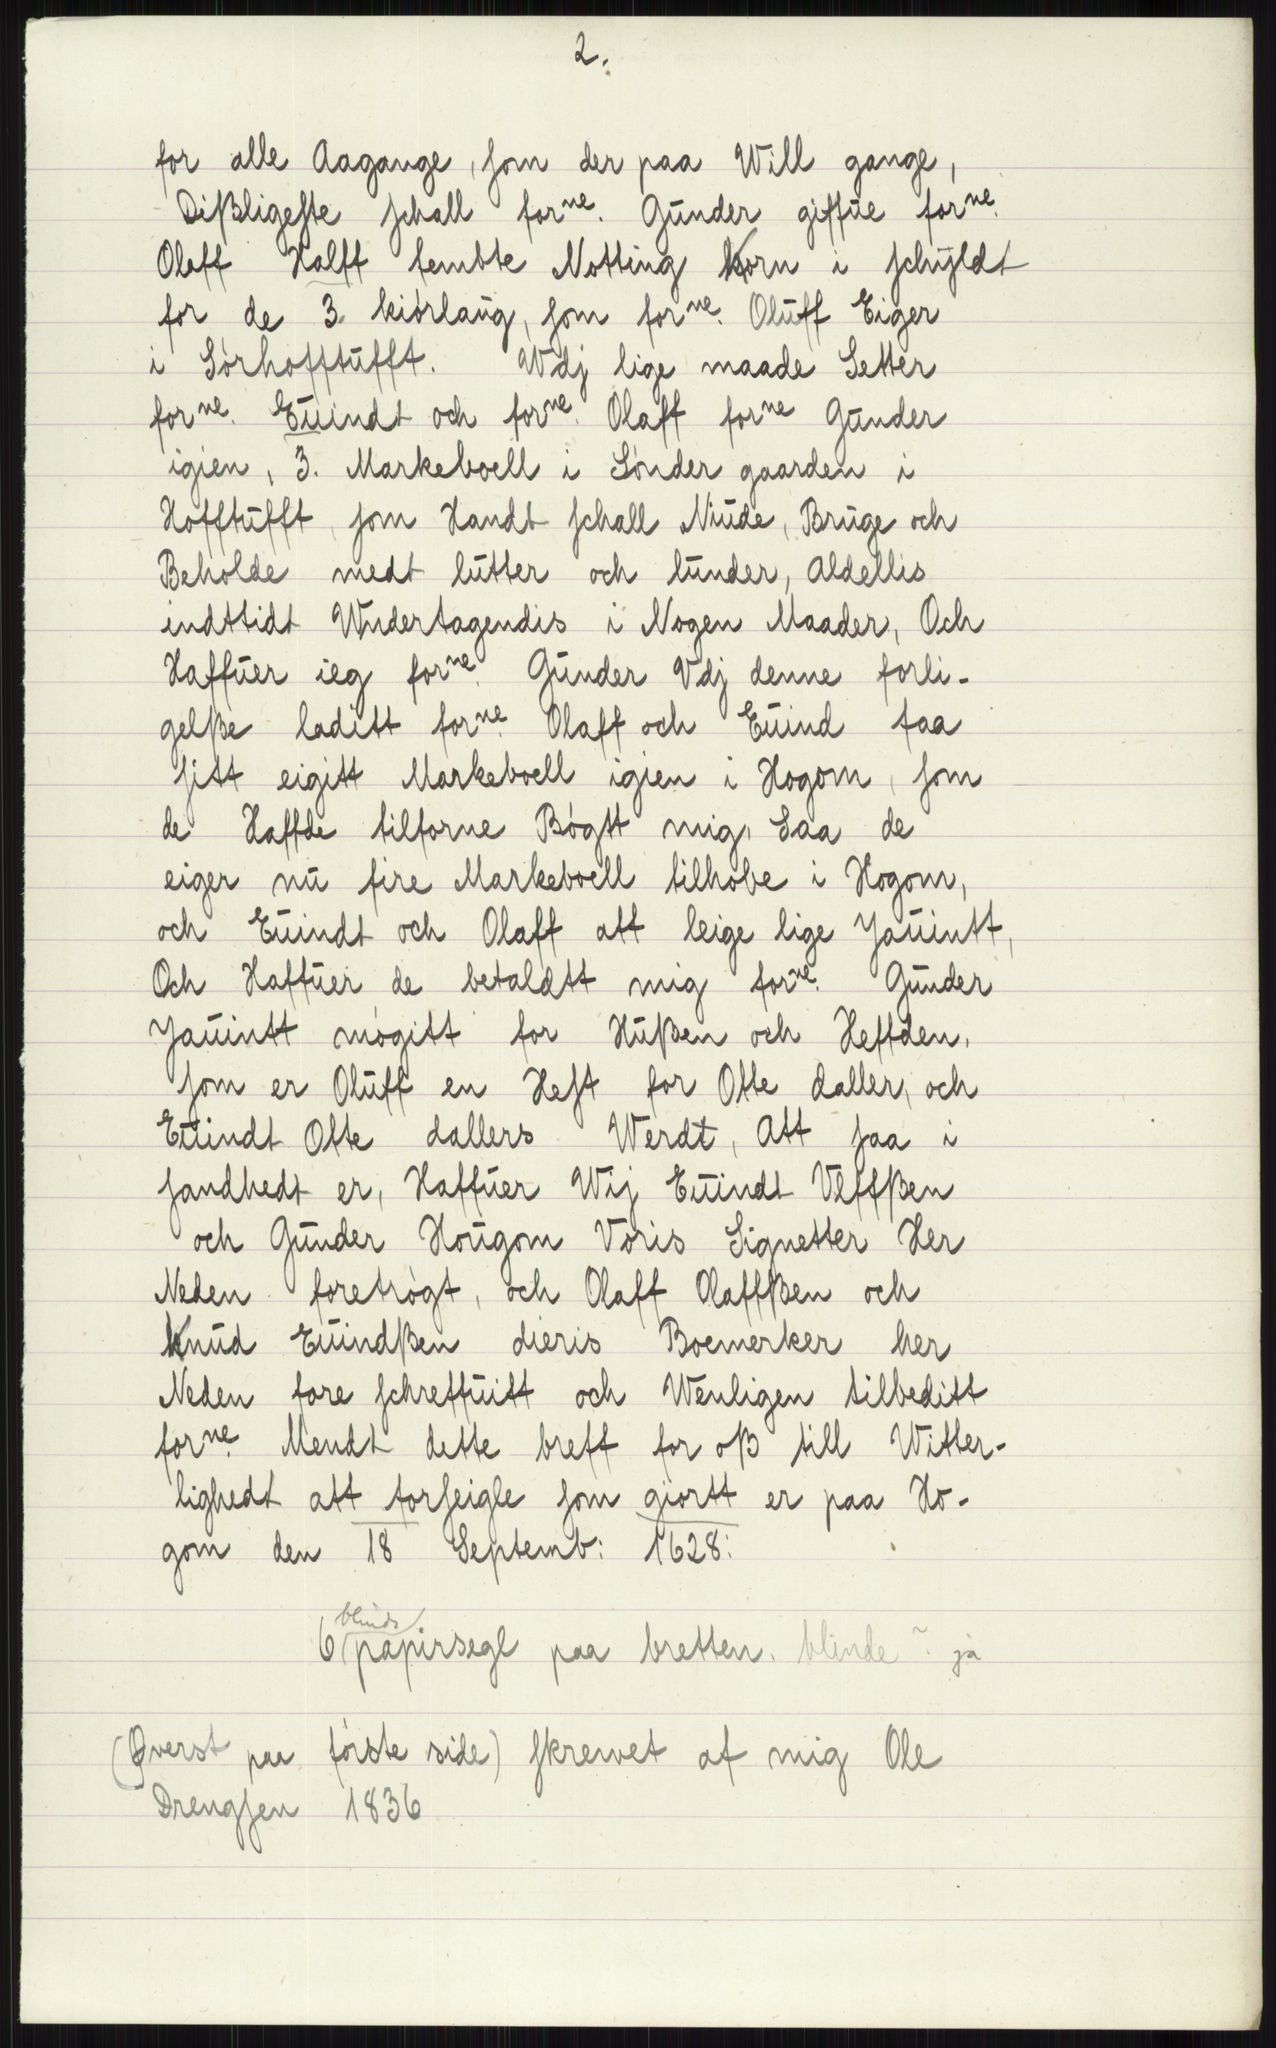 2.
for alle Aagange, som der paa Will gange,
Dißligeste schall forne. Gunder giffue forne.
Olaff Halff fembte Notting korn i schyldt
for de 3. kiörlaug, som forne. Oluff Eiger
i Sörhofftufft. Wdj lige maade Setter
forne. Euindt och forne. Olaff forne Gunder
igien, 3. Markeboell i Sönder gaarden i
Hofftufft, som Handt schall Niude, Bruge och
Beholde medt lutter och lunder, Aldellis
indttidt Wndertagendis i Nogen Maader, Och
Haffuer ieg forne. Gunder Vdj denne forli-
gelße laditt forne. Olaff och Euind faa
sitt eigitt Markeboell igien i Hogom, som
de Haffde tilforne Bögtt mig, Saa de
eiger nu fire Markeboell tilhobe i Hogom,
och Euindt och Olaff att leige lige Jauintt,
Och Haffuer de betaldtt mig forne. Gunder
Jauintt mögitt for Hußen och Heffden,
som er Oluff en Hest for Otte daller, och
Euindt Otte dallers Werdt, Att saa i
sandhedt er, Haffuer Wij Euindt Vlffßen
och Gunder Hougom Voris Signetter Her
Neden foretrögt, och Olaff Olaffßen och
knud Euindßen dieris Boemerker her
Neden fore schreffuitt och Wenligen tilbeditt
forne. Mendt dette breff for oß till Witter-
lighedt att forseigle som giortt er paa Ho-
gom den 18 Septemb: 1628:
blinde
6 papirsegl paa bretten. blinde ja
(Øverst paa förste side) skrewet af mig Ole
Drengsen 1836